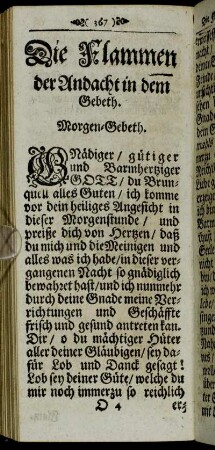 (367)
Die Flammen
der Andacht in dem
Gebeth.
Morgen-Gebeth.
GNädiger/ gütiger
und Barmhertziger
GOTT/ du Brun-
quell alles Guten/ ich komme
vor dein heiliges Angesicht in
dieser Morgenstunde/ und
preiße dich von Hertzen/ daß
du mich und die Meinigen und
alles was ich habe/ in dieser ver-
gangenen Nacht so gnädiglich
bewahret hast/ und ich nunmehr
durch deine Gnade meine Ver-
richtungen und Geschäffte
frisch und gesund antreten kan.
Dir/ o du mächtiger Hüter
aller deiner Gläubigen/ sey da-
für Lob und Danck gesagt!
Lob sey deiner Güte/ welche du
mir noch immerzu so reichlich
O 4 erz